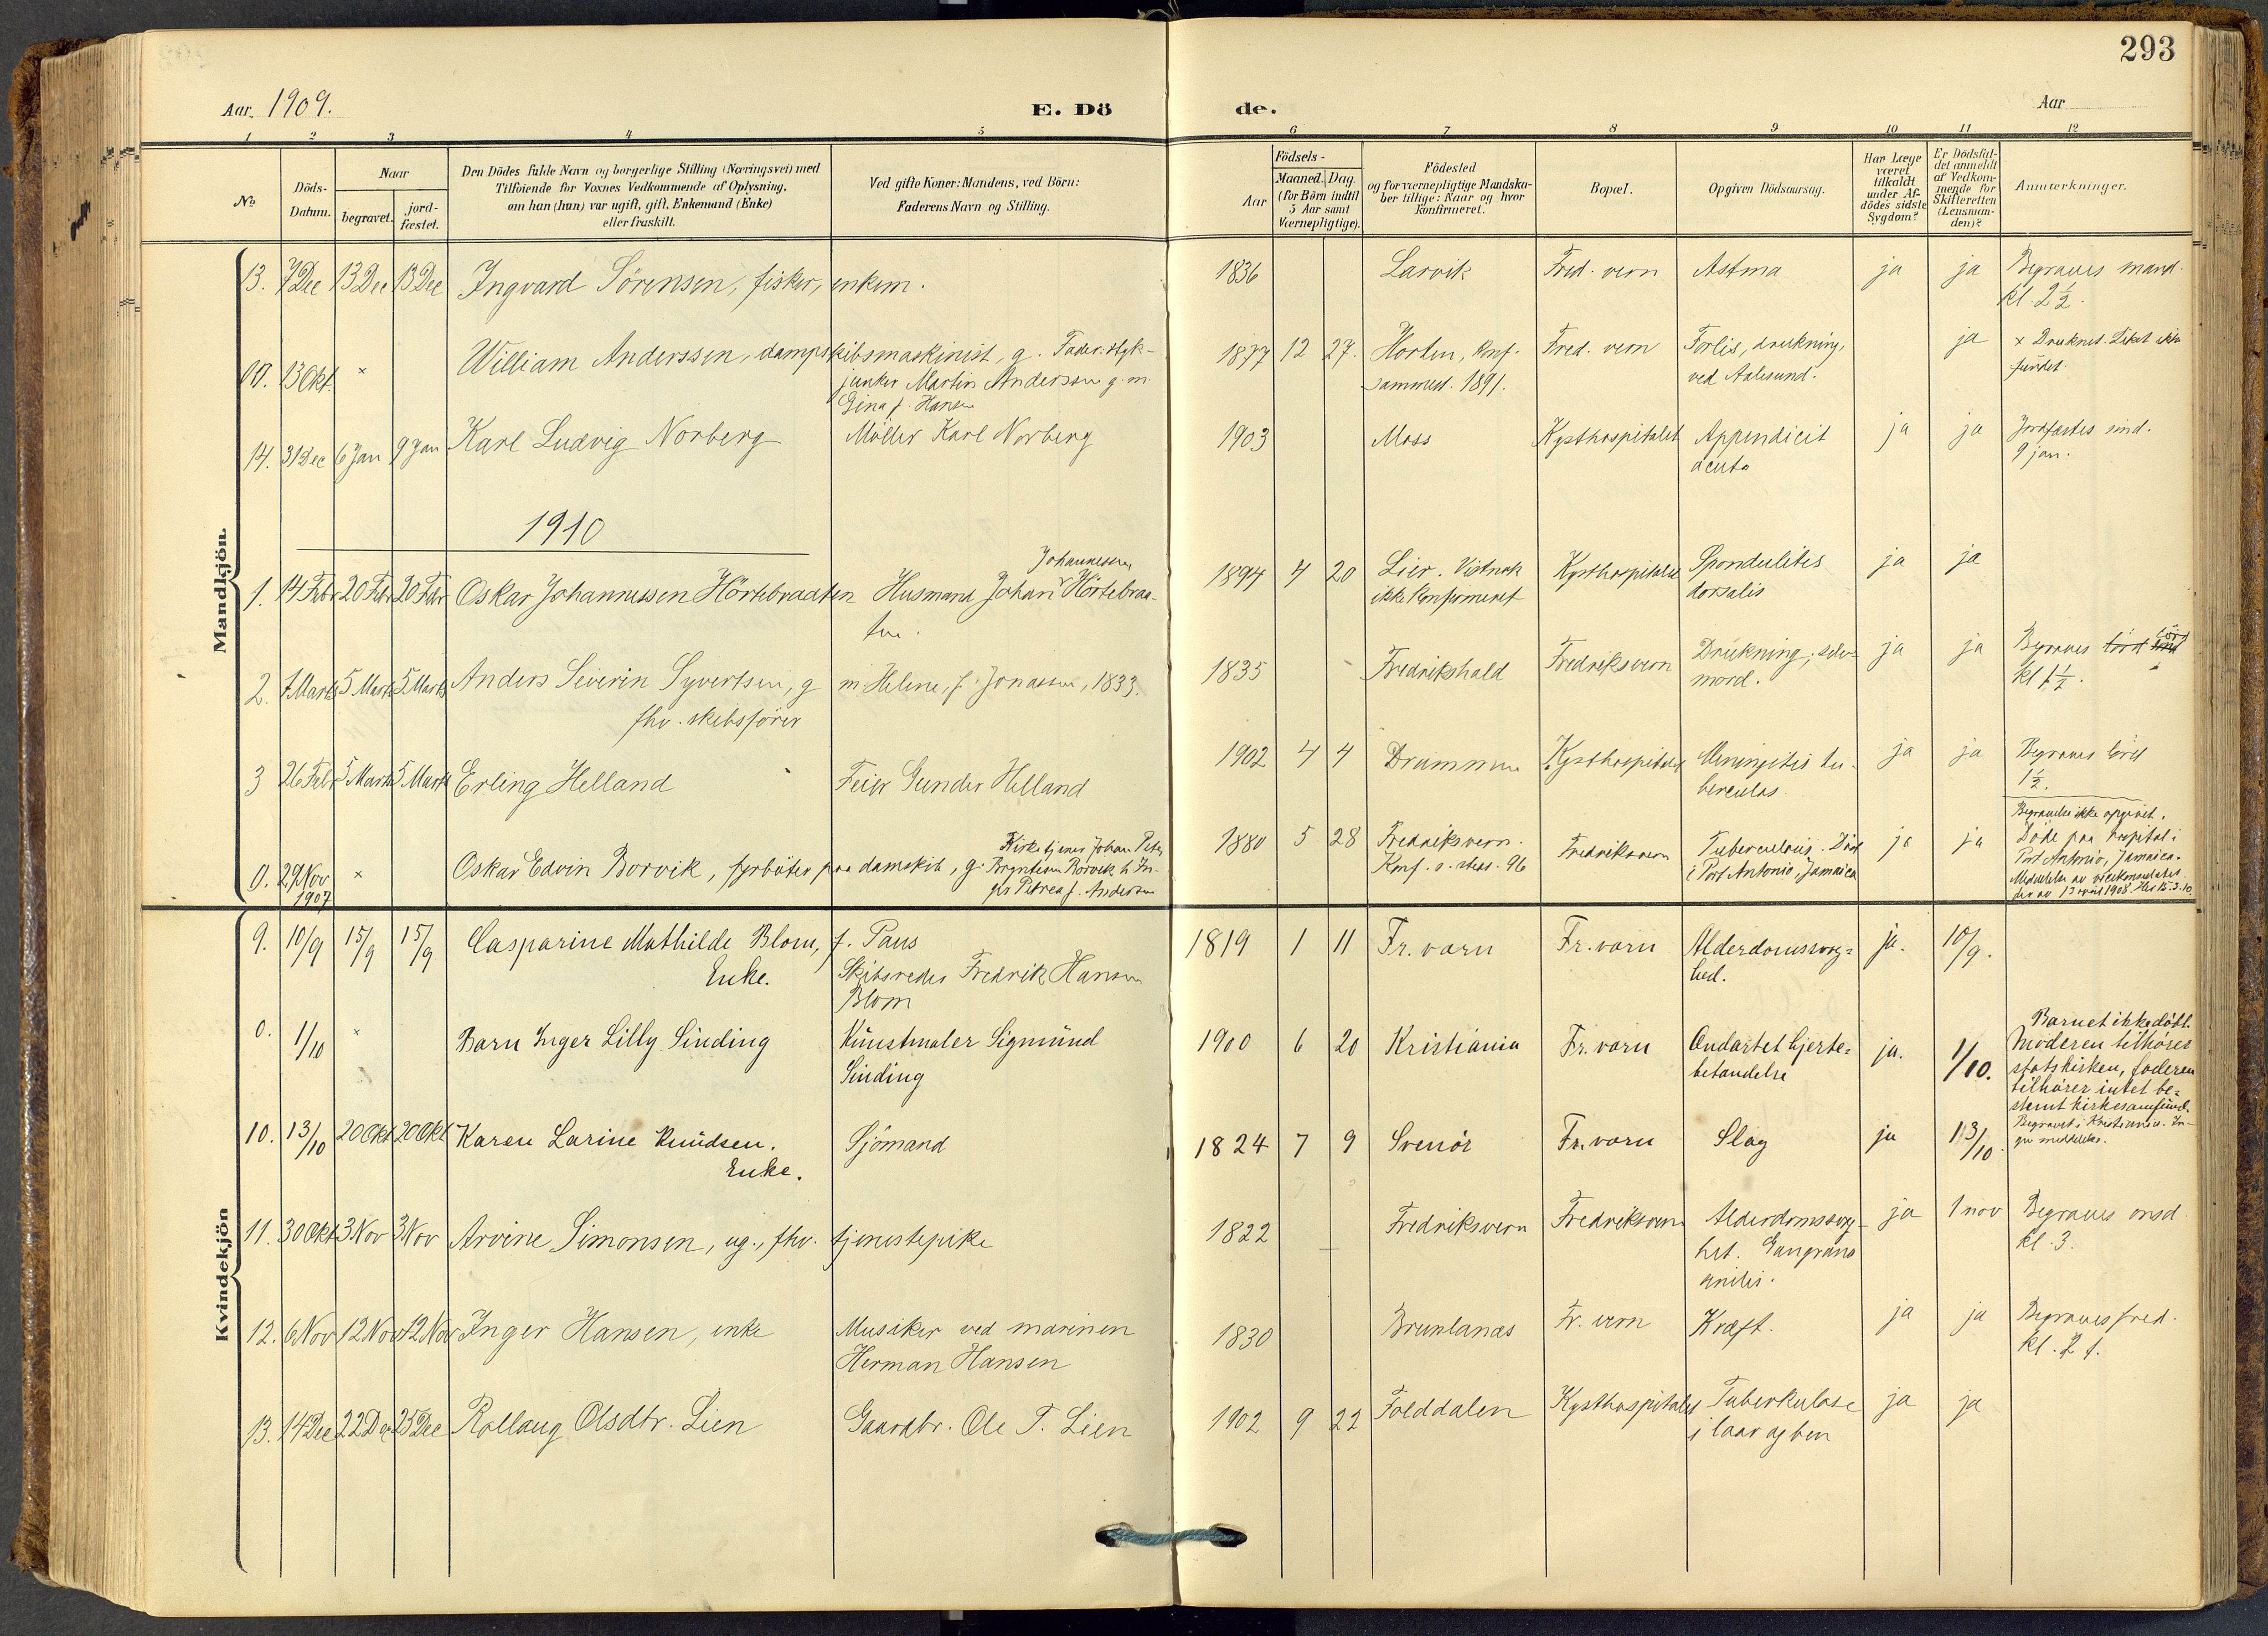 293
Aar. 1909.
E. Dö
de.
Aar
1 2 3 4 5 6 7 8 9 10 11 12
No
Döds-
Datum.
Naar
begravet.
jord-
fæstet.
Den Dödes fulde Navn og borgerlige Stilling (Næringsvei) med
Tilföiende for Voxnes Vedkommende af Oplysning,
om han (hun) var ugift, gift, Enkemand (Enke)
eller fraskilt.
Ved gifte Koner: Mandens, ved Börn:
Faderens Navn og Stilling.
Födsels-
Aar
Maaned. Dag.
(for Börn indtil
5 Aar samt
Værnepligtige).
Födested
og for værnepligtige Mandska-
ber tillige: Naar og hvor
konfirmeret.
Bopæl.
Opgiven Dödsaarsag.
Har Læge
været
tilkaldt
under Af-
dödes sidste
Sygdom?
Er Dödsfal-
det anmeldt
af Vedkom-
mende for
Skifteretten
(Lensman-
den)?
Anmærkninger.
Mandkjön.
13. 7 Dec 13 Dec 13 Dec Ingvard Sörensen, fisker, enkem. 1836 Larvik Fred. vern Astma ja ja Begraves mand.
kl. 2½.
00. 13 Okt × William Anderssen, dampskibsmaskinist, g. Fader: styk-
junker Martin Anderssen g. m.
Gina f. Hansen
1877 12 27. Horten, konf.
sammest. 1891.
Fred. vern Forlis, drukning,
ved Aalesund.
ja × Druknet. Liket ikke
fundet.
14. 31 Dec 6 Jan 9 Jan Karl Ludvig Norberg Möller Karl Norberg 1903 Moss Kysthospitalet Appendicit
acuta
ja ja Jordfæstes sönd.
9 jan.
1910
1. 14 Febr 20 Febr 20 Febr Oskar Johannessen Hörtebraaten Husmand Johan Johannessen Hörtebraa-
ten.
1894 4 20 Lier. Vistnok
ikke konfirmeret
Kysthospitalet Spondulites
dorsalis
ja ja
2. 1 Marts 5 Marts 5 Marts Anders Severin Syvertsen, g m Helene, f. Jonassen, 1833.
fhv. skibsförer
1835 Fredrikshald Fredriksvern Drukning, selv-
mord.
ja ja Begraves lörd
kl 1½.
3 26 Febr 5 Marts 5 Marts Erling Helland Feier Gunder Helland 1902 4 4 Drammen Kysthospitalet Meningitis tu-
berculos.
ja ja Begraves lörd
1½.
0. 29 Nov
1907
× Oskar Edvin Borvik, fyrböter paa damskib, g. Kirketjener Johan Peter
Bryntesen Borvik h In-
ger Petrea f. Andersen
1880 5 28 Fredriksvern.
Konf. s. sted. 96
Fredriksvern Tuberculosis. Död
i Port Antonio, Jamaica
ja ja Begravelse ikke opgivet.
Döde paa hospital i
Port Antonio, Jamaica.
Meddelelse av vicekonsulatet
der av 13 april 1908. Hit 15.3.10
Kvindekjön
9. 10/9 15/9 15/9 Casparine Mathilde Blom, f. Paus
Enke.
Skibsreder Fredrik Hansen
Blom
1819 1 11 Fr. værn Fr. værn Alderdomssvag=
hed.
ja. 10/9.
0. 1/10 × Barn Inger Lilly Sinding Kunstmaler Sigmund
Sinding
1900 6 20 Kristiania Fr. værn Ondartet hjerte=
betændelse
ja. 1/10. Barnet ikke döbt.
Moderen tilhörer
statskirken, faderen
tilhörer intet be=
stemt kirkesamfund.
Begravet i Kristiania. In-
gen meddelelse.
10. 13/10 20 Okt 20 Okt Karen Larine Knudsen.
Enke.
Sjömand 1824 7 9 Svenör Fr. værn Slag ja 13/10.
11. 30 Okt 3 Nov 3 Nov Arvine Simonsen, ug., fhv. tjenestepike 1822 Fredriksvern Fredriksvern Alderdomssvag-
het. Gangræna
senilis.
ja 1 nov Begraves onsd.
kl. 3.
12. 6 Nov 12 Nov 12 Nov Inger Hansen, enke Musiker ved marinen
Herman Hansen
1830 Brunlanæs Fr. vern Kræft. ja ja Begraves fred.
kl. 2
13. 14 Dec 22 Dec 25 Dec Rollaug Olsdtr. Lien Gaardbr. Ole T. Lien 1902 9 22 Folddalen Kysthospitalet Tuberkulose
i laar og ben
ja ja